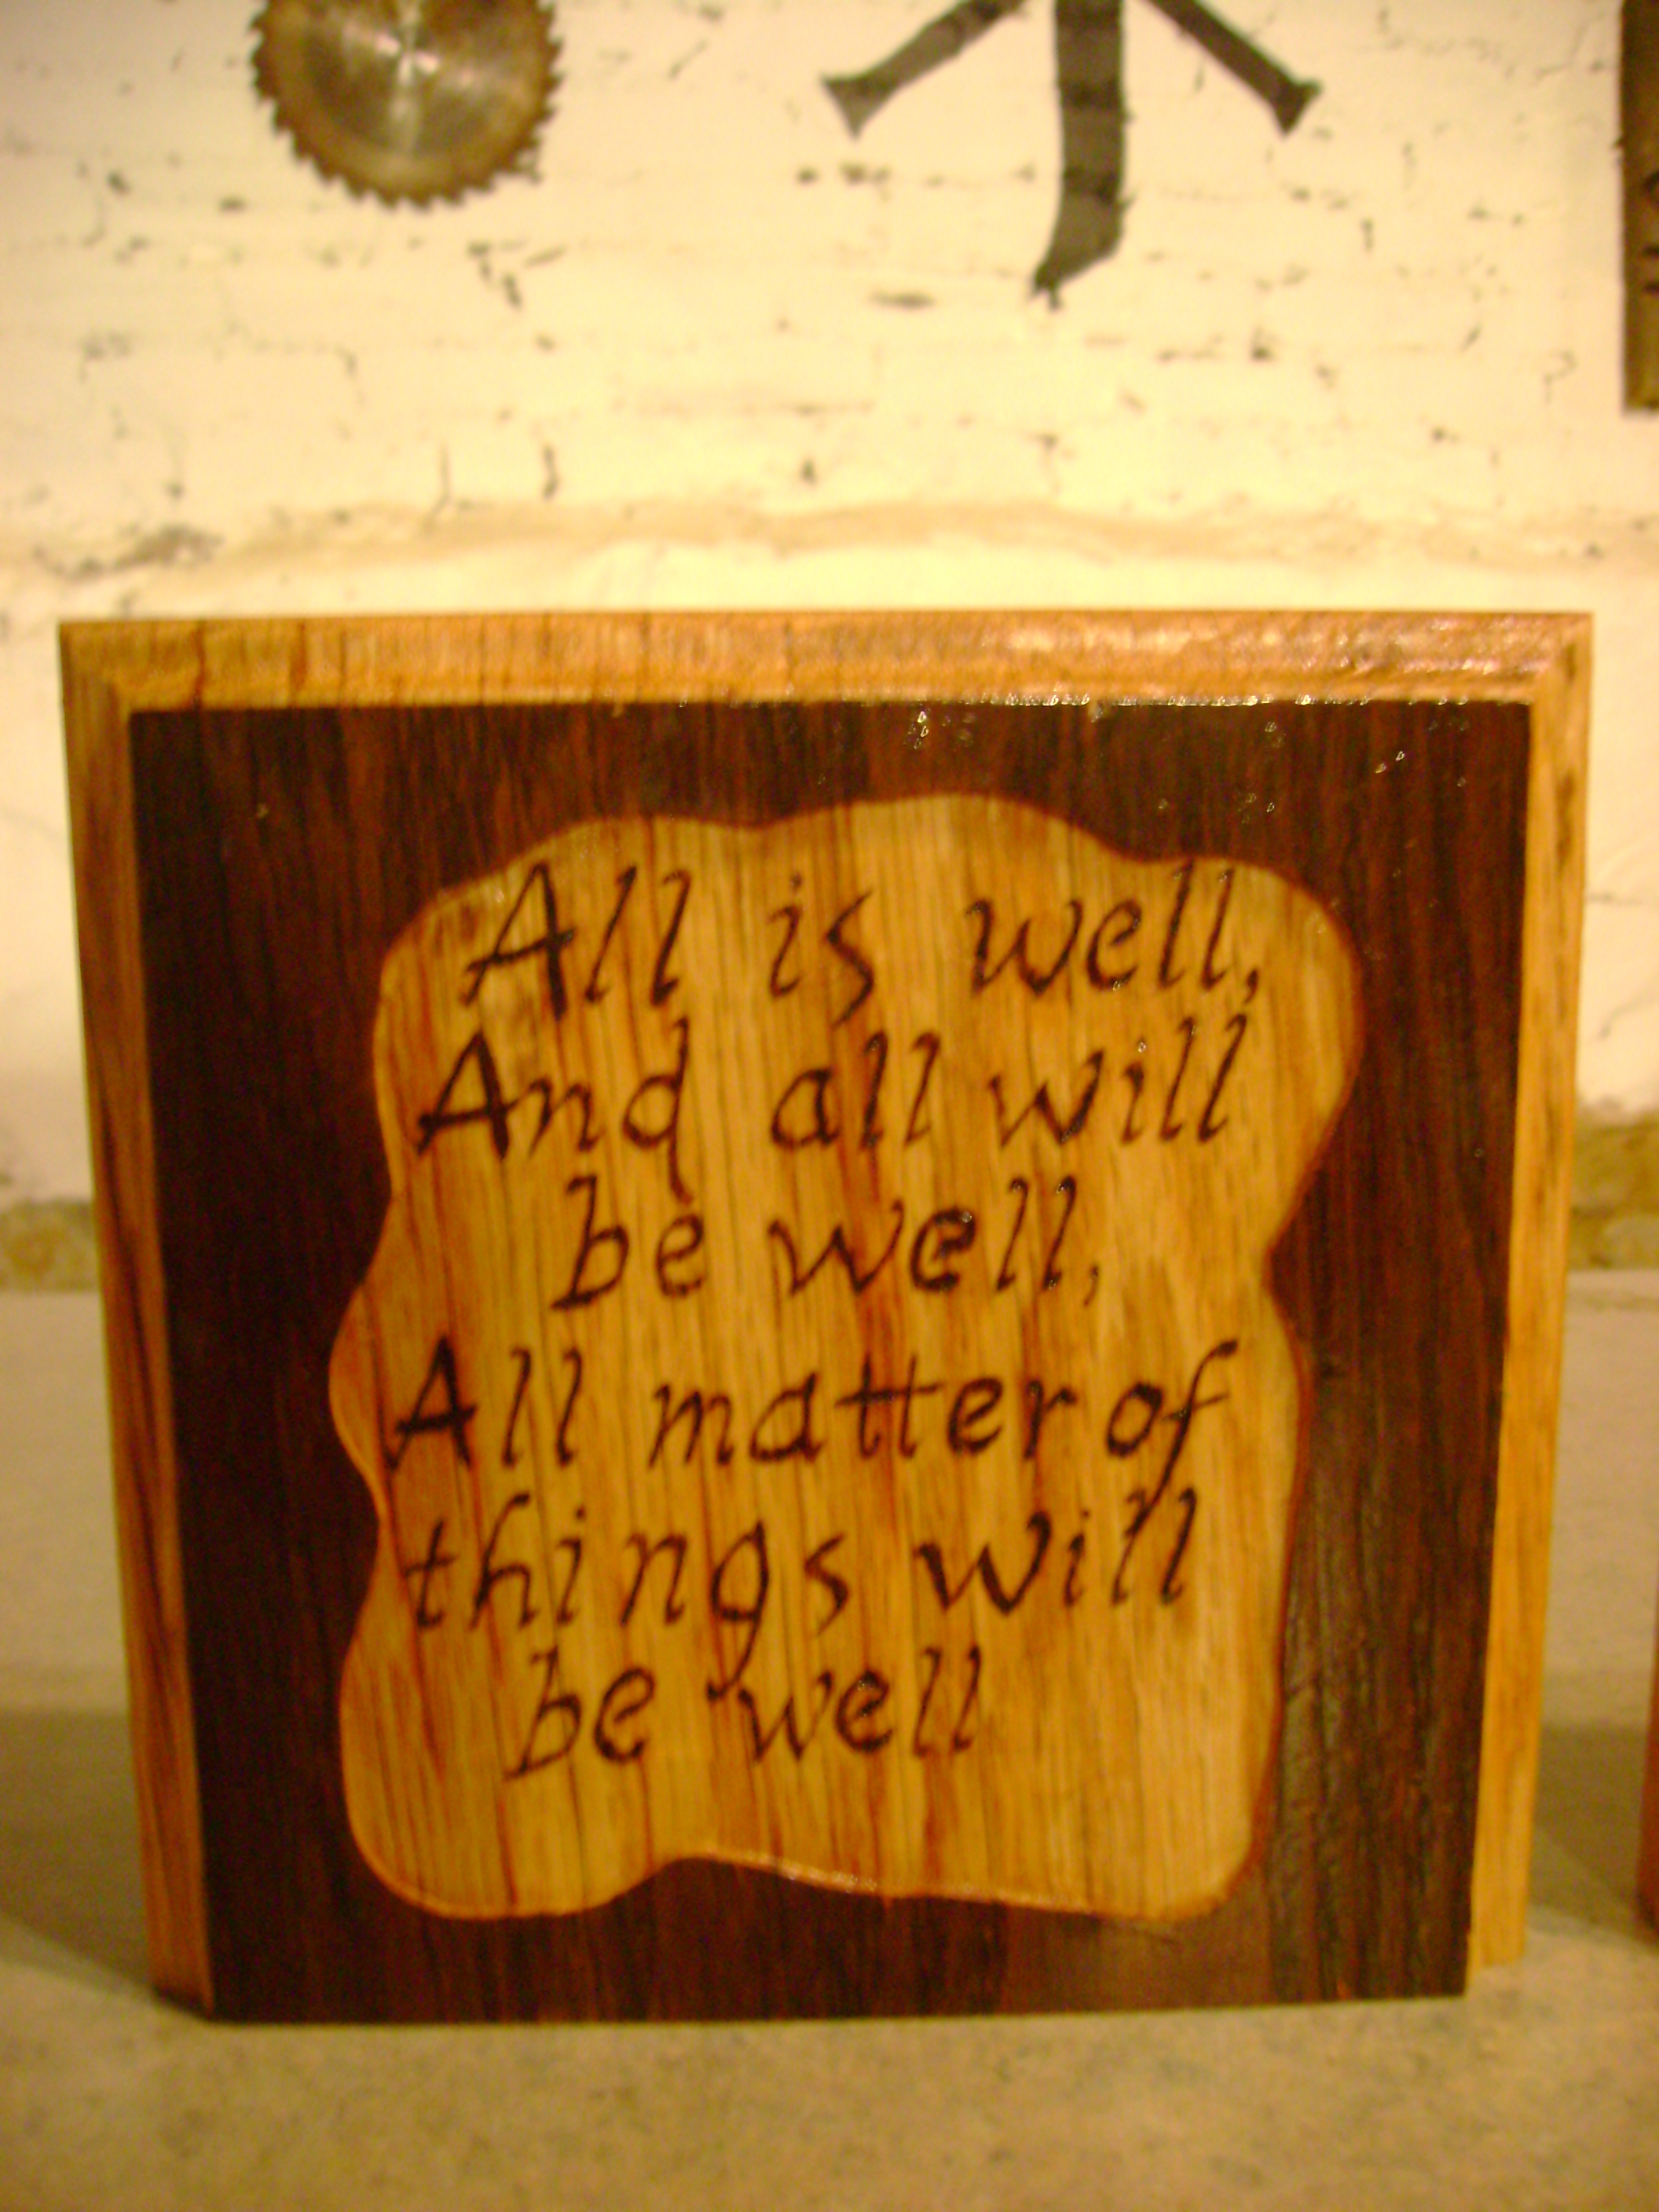 All is well,
And all will
be well,
All matter of
things will
be well